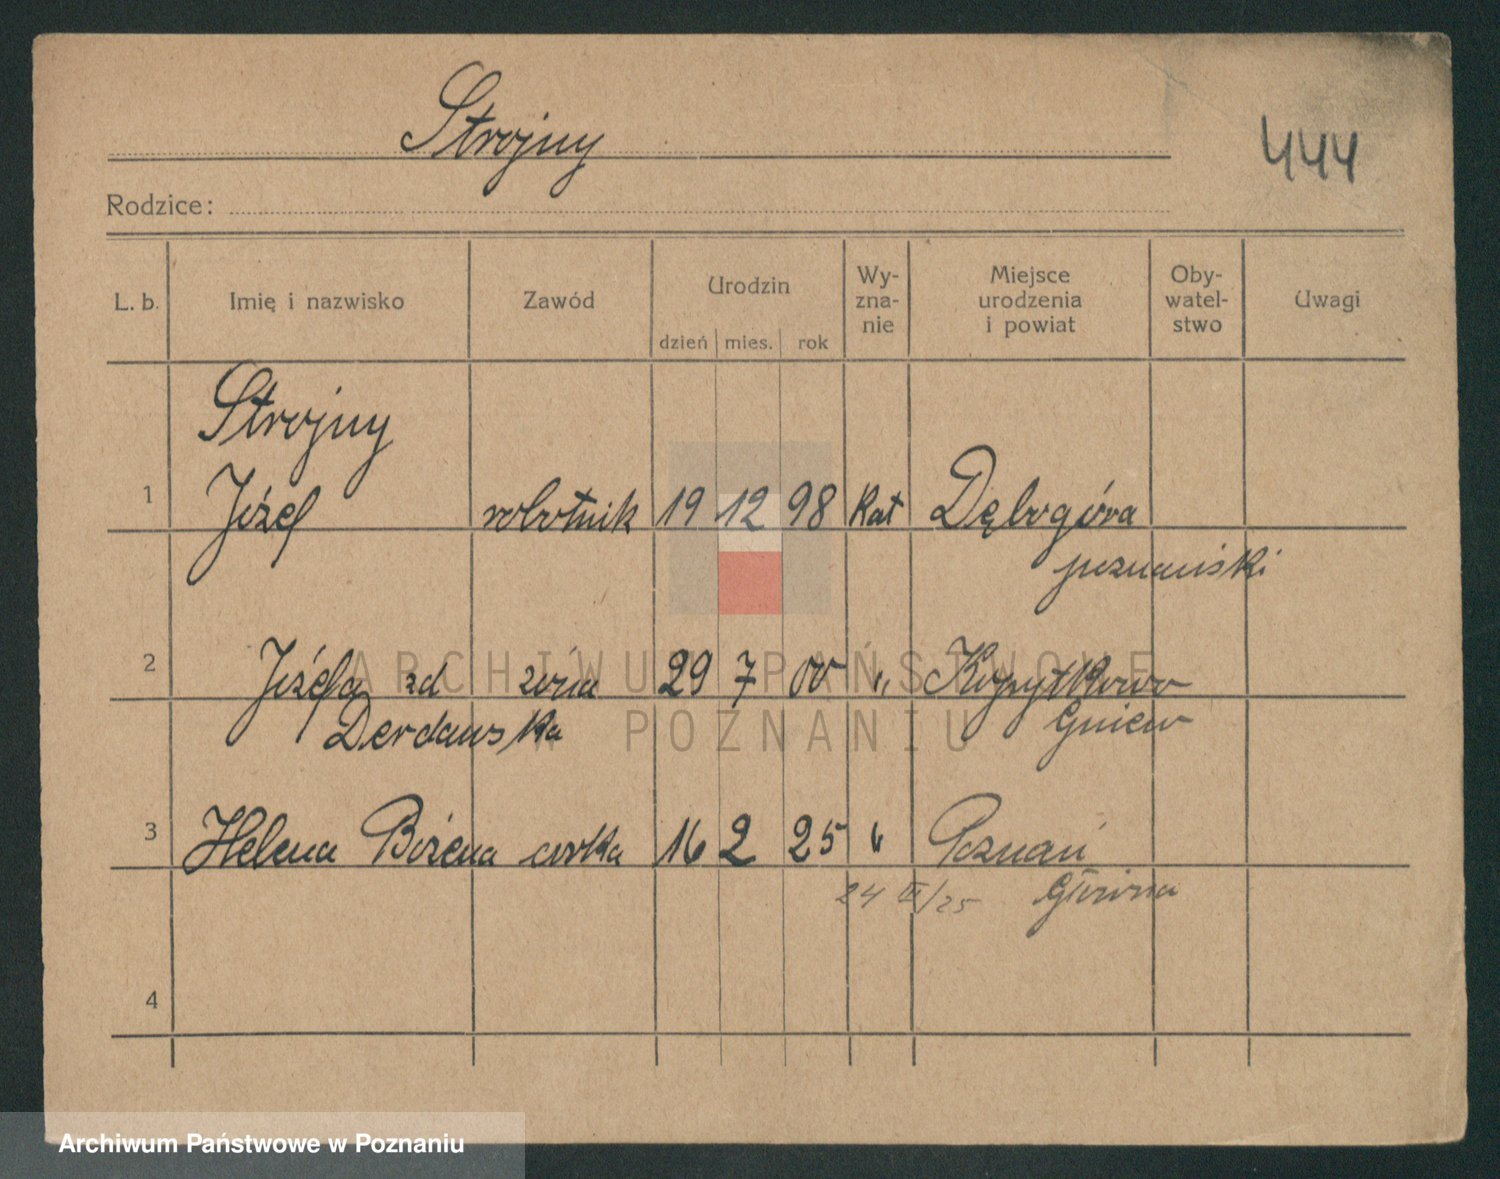 Strojny
444
Rodzice:
L. b. Imię i nazwisko Zawód Urodzin dzień mies. rok Wy-zna-nie Miejsce urodzenia i powiat Oby-watel-stwo Uwagi
Strojny
1 Józef robotnik 19 12 98 kat Dębogóra
poznański
2 Józefa zd żona 29 7 00 " Kopytkowo
Derdawska Gniew
3 Helena Bożena córka 16 2 25 " Poznań
24 III/25 Główna
4
ARCHIWUM PAŃSTWOWE
W POZNANIU
Archiwum Państwowe w Poznaniu